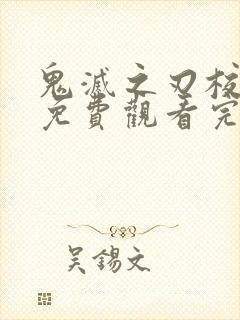 鬼滅之刃
免費觀看完
吴錫文